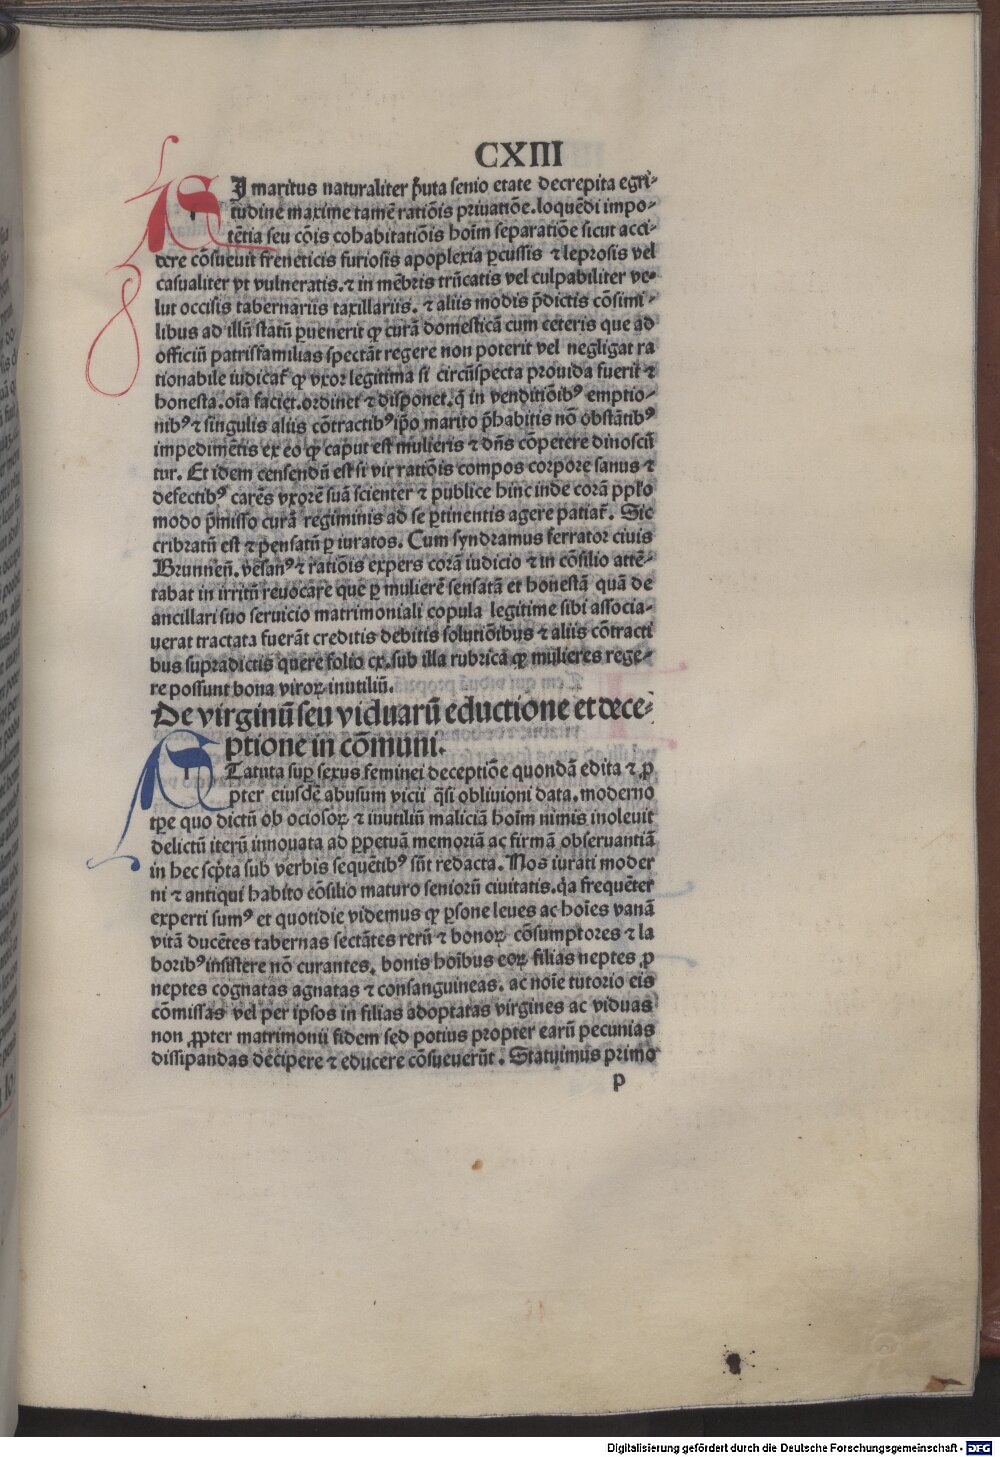 CXIII
SI maritus naturaliter p̃uta senio etate decrepita egri-
tudine maxime tamẽ ratiõis priuatiõe. loquẽdi impo-
tẽtia seu cõis cohabitatiõis hoĩm separatiõe sicut acci-
dere cõsueuit freneticis furiosis apoplexia ꝑcussis ⁊ leprosis vel
casualiter vt vulneratis. ⁊ in mẽbris trũcatis vel culpabiliter ve-
lut occisis tabernariis taxillariis. ⁊ aliis modis p̃dictis cõsimi-
libus ad illũ statũ ꝑuenerit ꝙ curã domesticã cum ceteris que ad
officiũ patrisfamilias spectãt regere non poterit vel negligat ra
tionabile iudicat᷑ ꝙ vxor legitima si circũspecta prouida fuerit ⁊
honesta. oĩa faciet. ordinet ⁊ disponet. q̃ in venditiõibꝰ emptio-
nibꝰ ⁊ singulis aliis cõtractibꝰ ip̃o marito p̃habitis nõ obstãtibꝰ
impedimẽtis ex eo ꝙ caput est mulieris ⁊ dñs cõpetere dinoscũ
tur. Et idem censendũ est si vir ratiõis compos corpore sanus ⁊
defectibꝰ carẽs vxorẽ suã scienter ⁊ publice hinc inde corã pp̃lo
modo p̃misso curã regiminis ad se ꝑtinentis agere patiat᷑. Sic
cribratũ est ⁊ pensatũ ꝑ iuratos. Cum syndramus ferrator ciuis
Brunneñ. vesanꝰ ⁊ ratiõis expers corã iudicio ⁊ in cõsilio attẽ-
tabat in irritũ reuocare que ꝑ mulierẽ sensatã et honestã quã de
ancillari suo seruicio matrimoniali copula legitime sibi associa-
uerat tractata fuerãt creditis debitis solutiõibus ⁊ aliis cõtracti
bus supradictis quere folio cx. sub illa rubricã ꝙ mulieres rege-
re possunt bona viroꝝ inutiliũ.
De virginũ seu viduarũ eductione et dece-
ptione in cõmuni.
STatuta suꝑ sexus feminei deceptiõe quondã edita ⁊ ꝓ
pter eiusdẽ abusum vicii q̃si obliuioni data. moderno
tꝑe quo dictũ ob ociosoꝝ ⁊ inutiliũ maliciã hoĩm nimis inoleuit
delictũ iterũ innouata ad ꝑpetuã memoriã ac firmã obseruantiã
in hec scp̃ta sub verbis sequẽtibꝰ sũt redacta. Nos iurati moder
ni ⁊ antiqui habito cõsilio maturo seniorũ ciuitatis. q̃a frequẽter
experti sumꝰ et quotidie videmus ꝙ ꝑsone leues ac hoĩes vanã
vitã ducẽtes tabernas sectãtes rerũ ⁊ bonoꝝ cõsumptores ⁊ la
boribꝰ insistere nõ curantes. bonis hoĩbus eoꝝ filias neptes ꝓ
neptes cognatas agnatas ⁊ consanguineas. ac noĩe tutorio eis
cõmissas vel per ipsos in filias adoptatas virgines ac viduas
non ꝓpter matrimonii fidem sed potius propter earũ pecunias
dissipandas decipere ⁊ educere cõsueuerũt. Statuimus primo
p
Digitalisierung gefördert durch die Deutsche Forschungsgemeinschaft - DFG